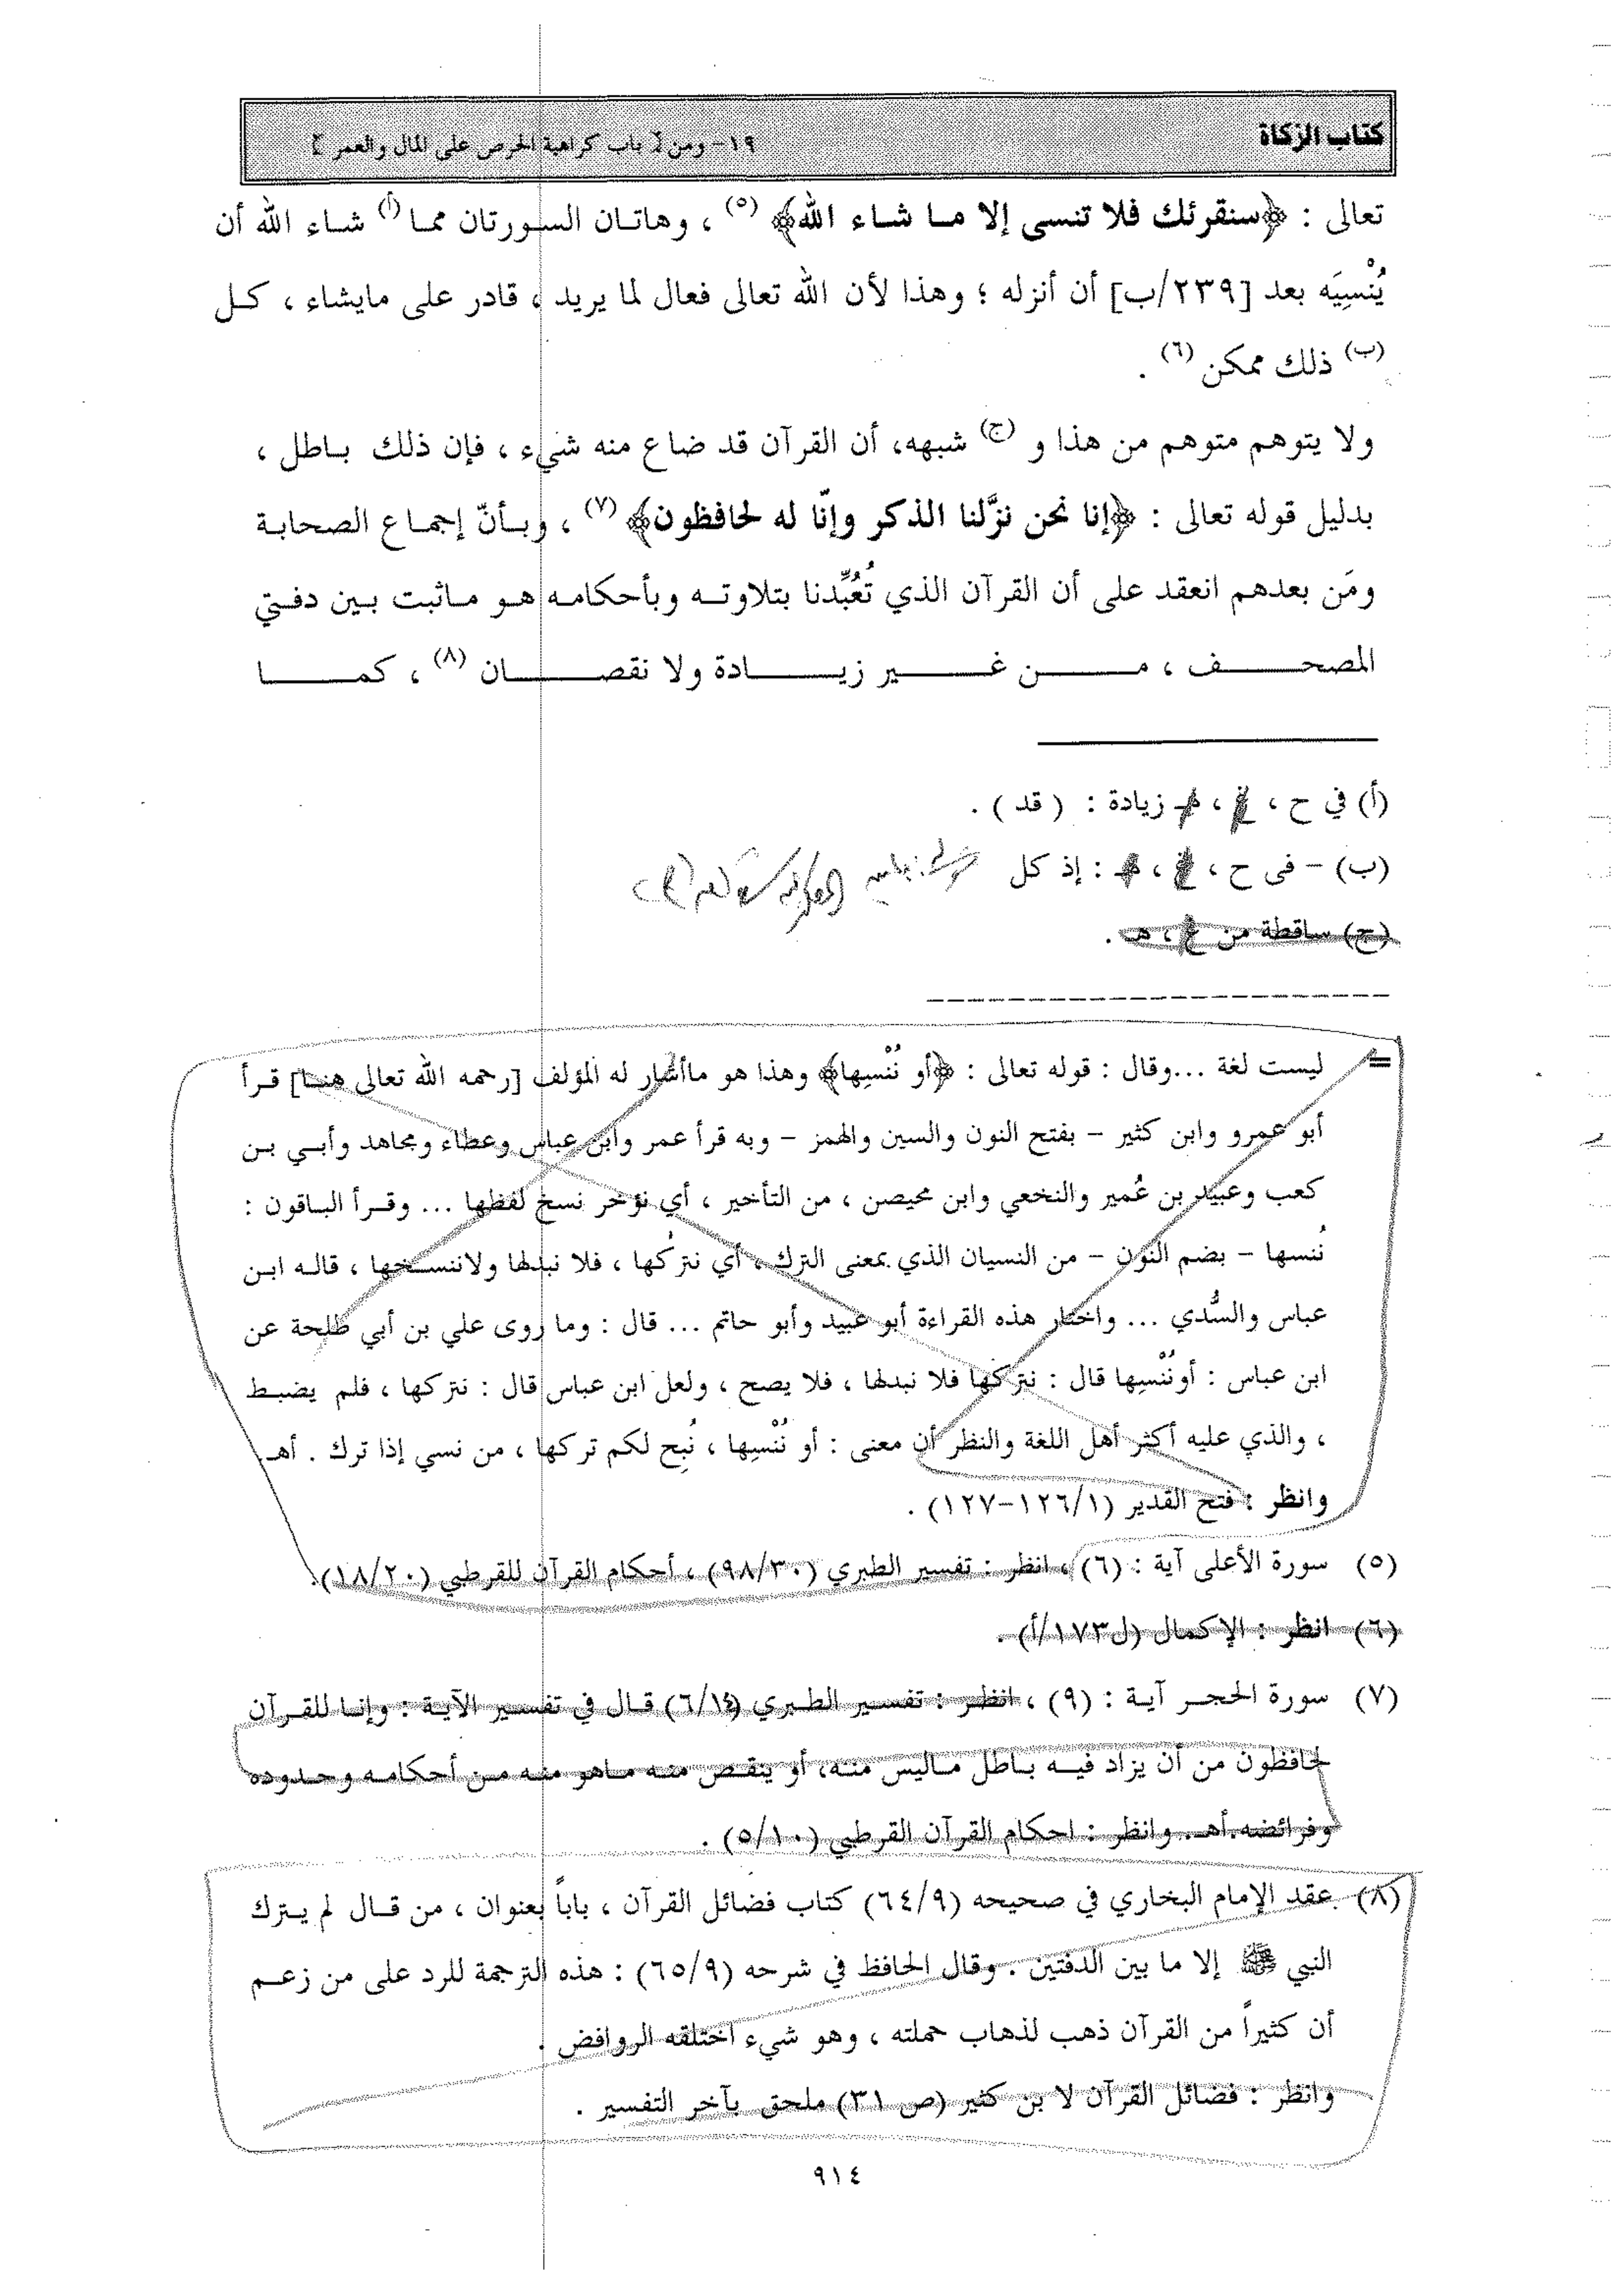 كتاب الزكاة
١٩- ومن [ باب كراهية الحرص على المال والعمر ]
تعالى : ﴿سنقرئك فلا تنسى إلا ما شاء الله﴾ (٥) ، وهاتان السورتان مما (أ) شاء الله أن
يُنْسِيَه بعد [٢٣٩/ب] أن أنزله ؛ وهذا لأن الله تعالى فعال لما يريد ، قادر على مايشاء ، كل
(ب) ذلك ممكن (٦) .
ولا يتوهم متوهم من هذا و (ج) شبهه، أن القرآن قد ضاع منه شيء ، فإن ذلك باطل ،
بدليل قوله تعالى : ﴿إنا نحن نزَّلنا الذكر وإنّا له لحافظون﴾ (٧) ، وبأنّ إجماع الصحابة
ومَن بعدهم انعقد على أن القرآن الذي تُعُبِّدنا بتلاوته وبأحكامه هو ماثبت بين دفتي
المصحف ، من غير زيادة ولا نقصان (٨) ، كما
(أ) في ح ، ، زيادة : ( قد ) .
(ب) - فى ح ، ، : إذ كل
(ج) ساقطة من ع ، هـ .
= ليست لغة ...وقال : قوله تعالى : ﴿أو نُنْسِها﴾ وهذا هو ماأشار له المؤلف [رحمه الله تعالى هنا] قرأ
أبو عمرو وابن كثير - بفتح النون والسين والهمز - وبه قرأ عمر وابن عباس وعطاء ومجاهد وأبي بن
كعب وعبيد بن عُمير والنخعي وابن محيصن ، من التأخير ، أي نؤخر نسخ لفظها ... وقرأ الباقون :
نُنسها - بضم النون - من النسيان الذي بمعنى الترك ، أي نتركها ، فلا نبدلها ولاننسخها ، قاله ابن
عباس والسُّدي ... واختار هذه القراءة أبو عبيد وأبو حاتم ... قال : وما روى علي بن أبي طلحة عن
ابن عباس : أونُنْسِها قال : نتركها فلا نبدلها ، فلا يصح ، ولعل ابن عباس قال : نتركها ، فلم يضبط
، والذي عليه أكثر أهل اللغة والنظر أن معنى : أو نُنْسِها ، نُبِح لكم تركها ، من نسي إذا ترك . أهـ.
وانظر : فتح القدير (١٢٦/١-١٢٧) .
(٥) سورة الأعلى آية : (٦) ، انظر : تفسير الطبري (٩٨/٣٠) ، أحكام القرآن للقرطبي (١٨/٢٠).
(٦) انظر : الإكمال (ل١٧٣/أ) .
(٧) سورة الحجر آية : (٩) ، انظر : تفسير الطبري (٦/١٤) قال في تفسير الآية : وإنا للقرآن
لحافظون من أن يزاد فيه باطل ماليس منه، أو ينقص منه ماهو منه من أحكامه وحدوده
وفرائضه.أهـ. وانظر : احكام القرآن القرطبي (٥/١٠) .
(٨) عقد الإمام البخاري في صحيحه (٦٤/٩) كتاب فضائل القرآن ، باباً بعنوان ، من قال لم يترك
النبي ﷺ إلا ما بين الدفتين . وقال الحافظ في شرحه (٦٥/٩) : هذه الترجمة للرد على من زعم
أن كثيراً من القرآن ذهب لذهاب حملته ، وهو شيء اختلقه الروافض .
وانظر : فضائل القرآن لا بن كثير (ص ٣١) ملحق بآخر التفسير .
٩١٤